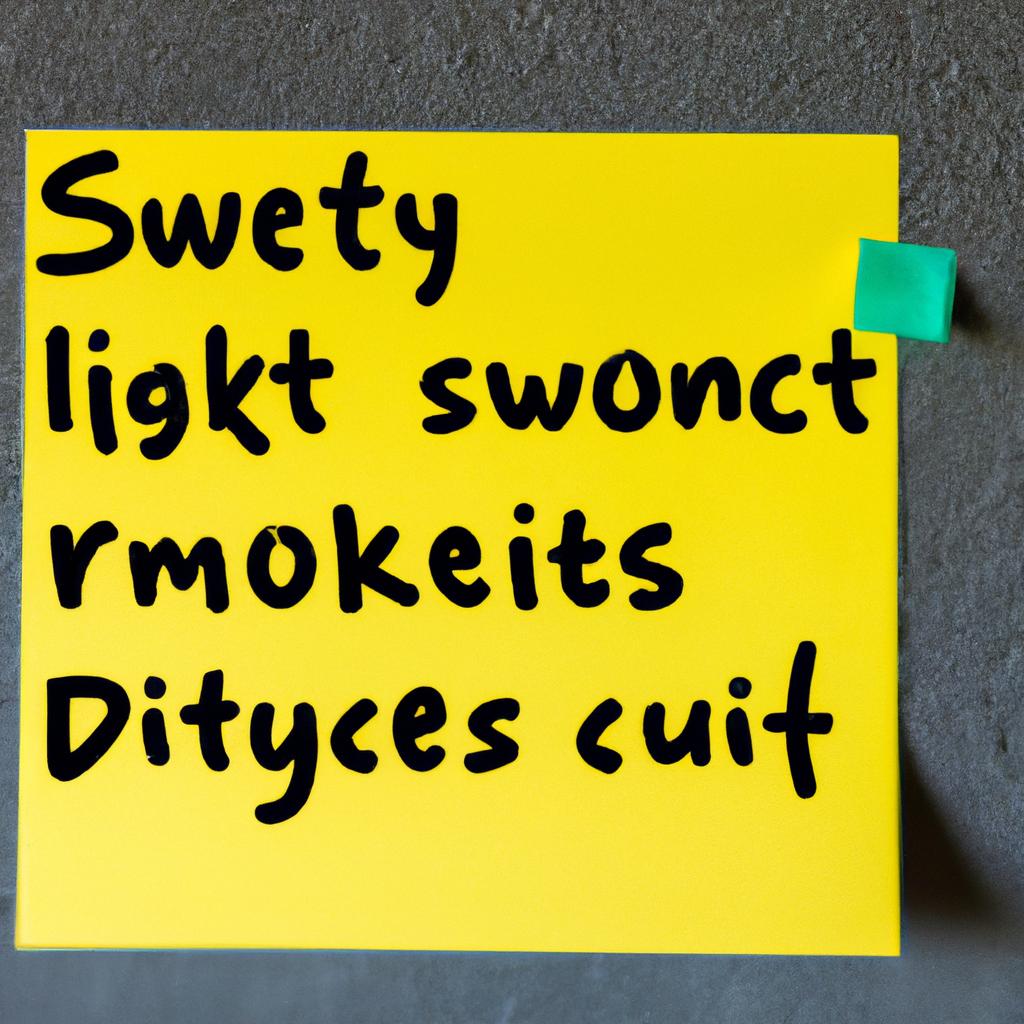 Swety
ligkt swonct
rmokeits
Dityces cuit